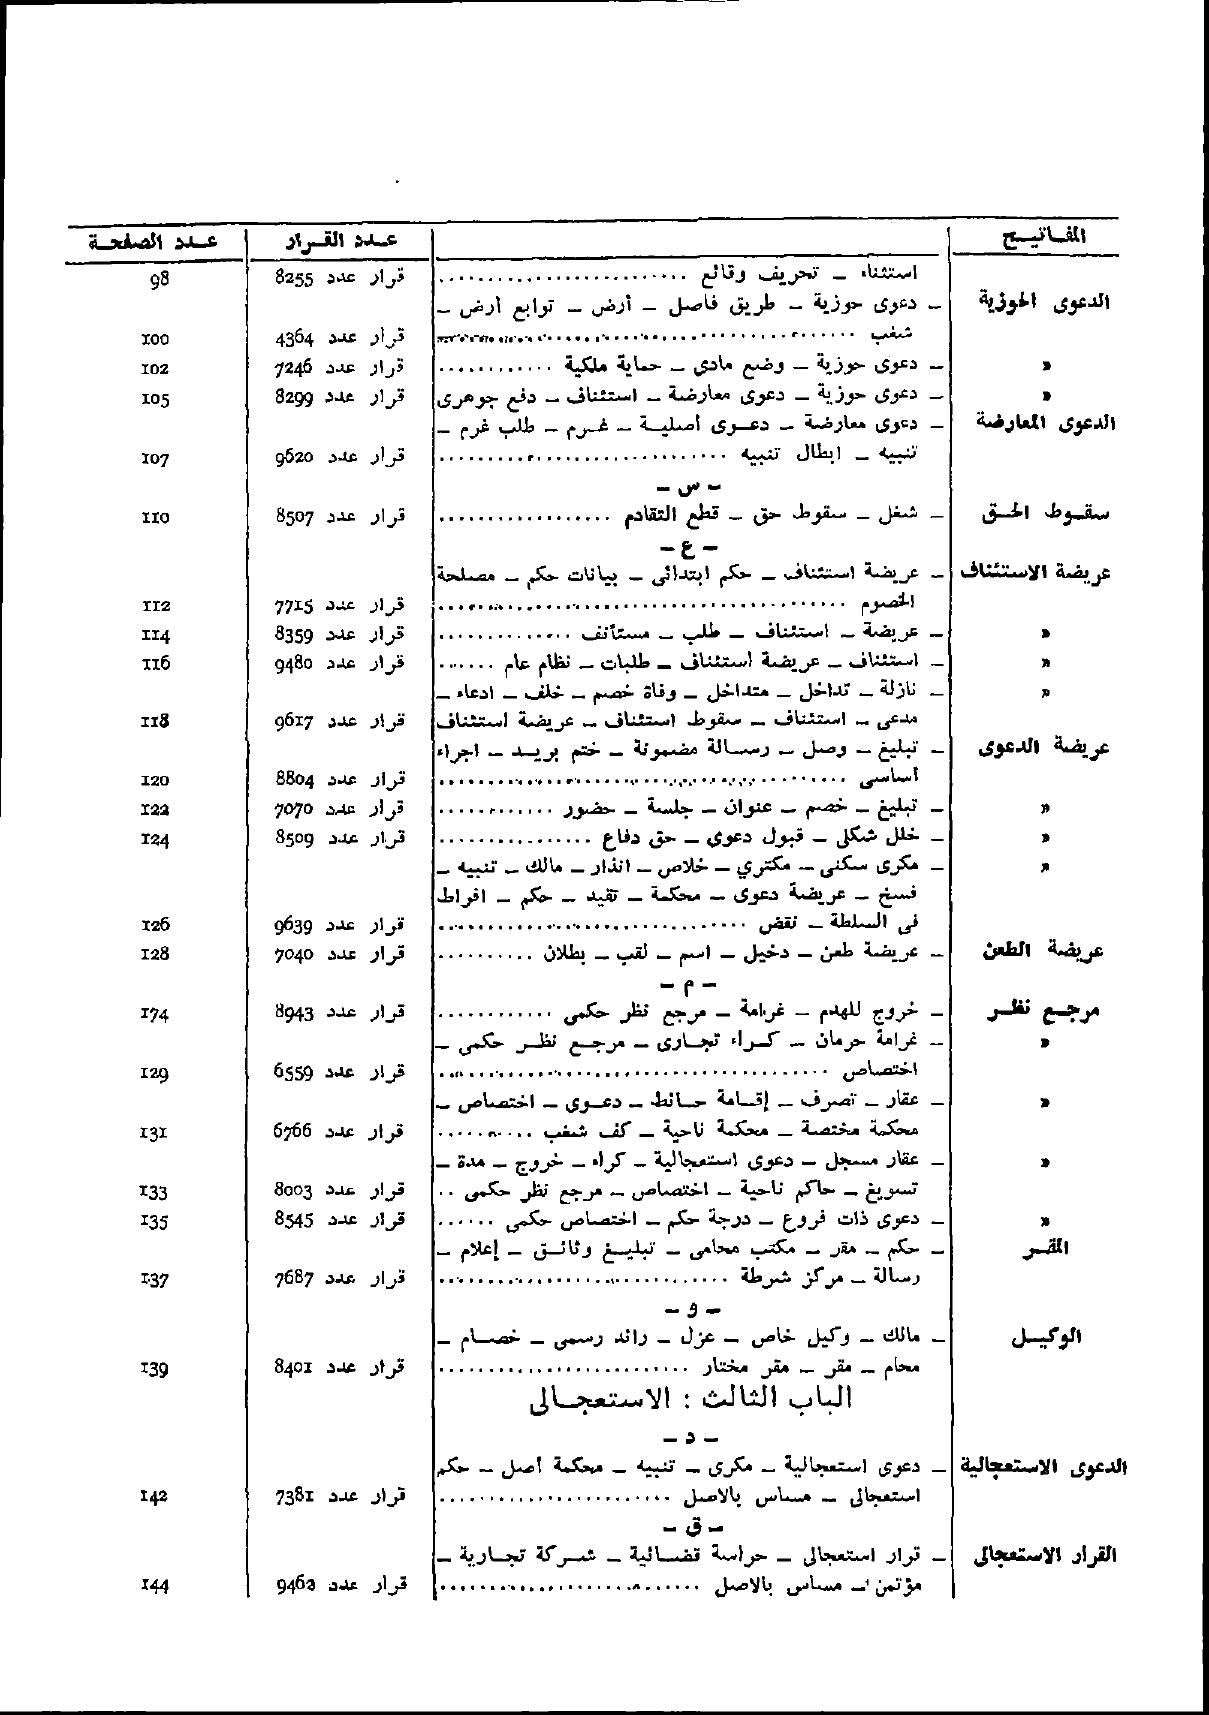 المفاتيح عدد القرار عدد الصفحة
استثناء – تحريف وقائع .......................... قرار عدد 8255 98
الدعوى الحوزية – دعوى حوزية – طريق فاصل – أرض – توابع أرض –
شغب .......................... قرار عدد 4364 100
» – دعوى حوزية – وضع مادي – حماية ملكية ............ قرار عدد 7246 102
» – دعوى حوزية – دعوى معارضة – استئناف – دفع جوهرى قرار عدد 8299 105
الدعوى المعارضة – دعوى معارضة – دعوى أصلية – غرم – طلب غرم –
تنبيه – ابطال تنبيه .......................... قرار عدد 9620 107
– س –
سقوط الحق – شغل – سقوط حق – قطع التقادم .................. قرار عدد 8507 110
– ع –
عريضة الاستئناف – عريضة استئناف – حكم ابتدائى – بيانات حكم – مصلحة
الخصوم .......................... قرار عدد 7715 112
» – عريضة – استئناف – طلب – مستأنف .............. قرار عدد 8359 114
» – استئناف – عريضة استئناف – طلبات – نظام عام ...... قرار عدد 9480 116
» – نازلة – تداخل – متداخل – وفاة خصم – خلف – ادعاء –
مدعى – استئناف – سقوط استئناف – عريضة استئناف قرار عدد 9617 118
عريضة الدعوى – تبليغ – وصل – رسالة مضمونة – ختم بريد – اجراء
أساسى .......................... قرار عدد 8804 120
» – تبليغ – خصم – عنوان – جلسة – حضور ............ قرار عدد 7070 122
» – خلل شكلى – قبول دعوى – حق دفاع ................ قرار عدد 8509 124
» – مكرى سكنى – مكتري – خلاص – انذار – مالك – تنبيه –
فسخ – عريضة دعوى – محكمة – تقيد – حكم – افراط
فى السلطة – نقض .......................... قرار عدد 9639 126
عريضة الطعن – عريضة طعن – دخيل – اسم – لقب – بطلان .......... قرار عدد 7040 128
– م –
مرجع نظر – خروج للهدم – غرامة – مرجع نظر حكمى ............ قرار عدد 8943 174
» – غرامة حرمان – كراء تجارى – مرجع نظر حكمى –
اختصاص .......................... قرار عدد 6559 129
» – عقار – تصرف – إقامة حائط – دعوى – اختصاص –
محكمة مختصة – محكمة ناحية – كف شغب .......... قرار عدد 6766 131
» – عقار مسجل – دعوى استعجالية – كراء – خروج – مدة –
تسويغ – حاكم ناحية – اختصاص – مرجع نظر حكمى .. قرار عدد 8003 133
» – دعوى ذات فروع – درجة حكم – اختصاص حكمى ...... قرار عدد 8545 135
المقر – حكم – مقر – مكتب محامى – تبليغ وثائق – إعلام –
رسالة – مركز شرطة .......................... قرار عدد 7687 137
– و –
الوكيل – مالك – وكيل خاص – عزل – رائد رسمى – خصام –
محام – مقر – مقر مختار .......................... قرار عدد 8401 139
الباب الثالث : الاستعجالى
– د –
الدعوى الاستعجالية – دعوى استعجالية – مكرى – تنبيه – محكمة أصل – حكم
استعجالى – مساس بالاصل .......................... قرار عدد 7381 142
– ق –
القرار الاستعجالى – قرار استعجالى – حراسة قضائية – شركة تجارية –
مؤتمن – مساس بالاصل .......................... قرار عدد 9462 144